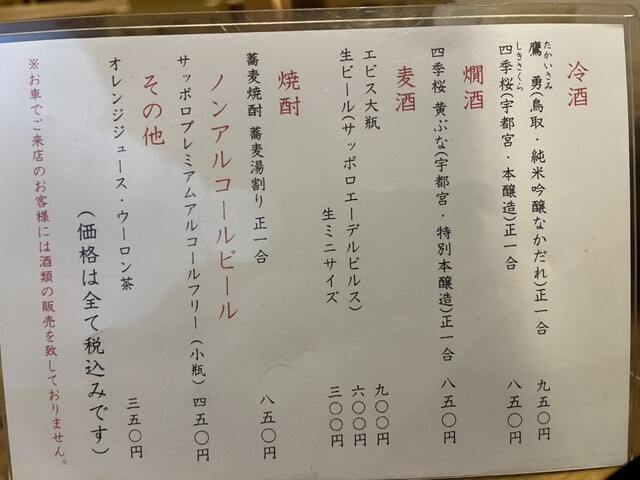 冷酒
鷹勇(鳥取・純米吟醸なかだれ)正一合 九五〇円
たかいさみ
四季桜(宇都宮・本醸造)正一合 八五〇円
しきさくら
燗酒
四季桜 黄ぶな(宇都宮・特別本醸造)正一合 八五〇円
麦酒
エビス大瓶 九〇〇円
生ビール(サッポロエーデルピルス) 六〇〇円
生ミニサイズ 三〇〇円
焼酎
蕎麦焼酎 蕎麦湯割り 正一合 八五〇円
ノンアルコールビール
サッポロプレミアムアルコールフリー(小瓶) 四五〇円
その他
オレンジジュース・ウーロン茶 三五〇円
(価格は全て税込みです)
※お車でご来店のお客様には酒類の販売を致しておりません。